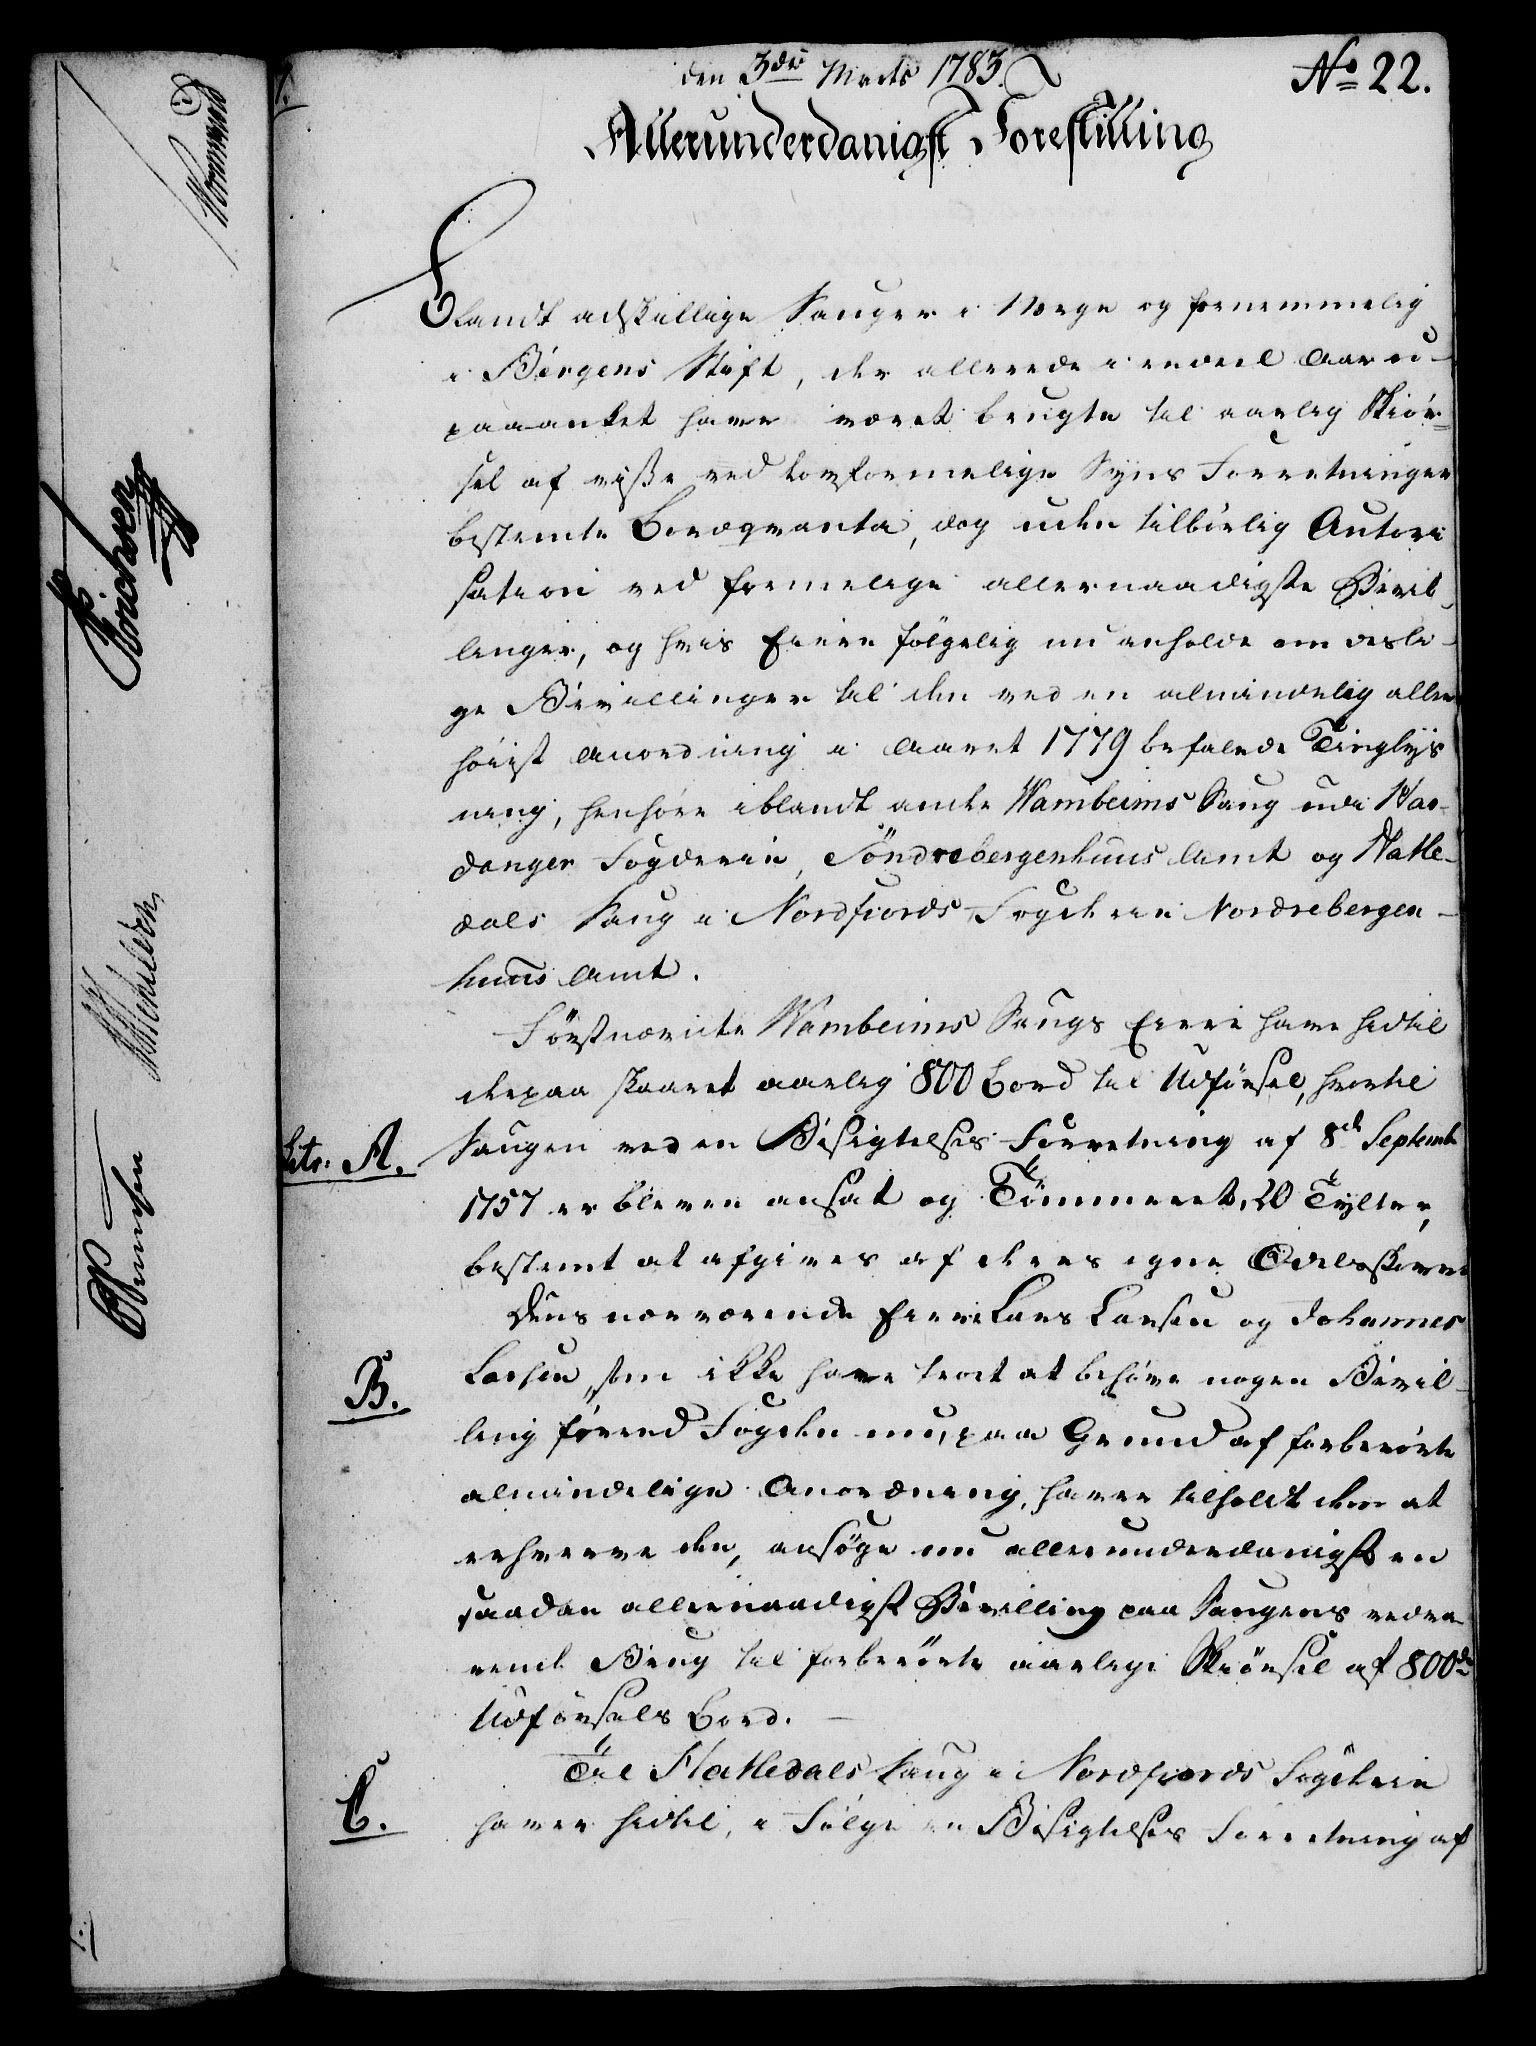 den 3die Marts 1783.
No 22.
Allerunderdanigst Forestilling
Blandt adskillige Sauger i Norge og fornemmelig
i Bergens Stift, der allerede i endeel Aar u-
paaanket have været brugte til aarlig Skiør-
sel af visse ved lovformelige Syns Forretninger
bestemte Bordqvanta, dog uden tilbørlig Autori
sation ved formelige allernaadigste Bevil-
linger, og hvis Eiere følgelig nu anholde om desli-
ge Bevillinger til den ved en almindelig aller
høiest Anordning i Aaret 1779 befalede Tinglys
ning, henhøre iblandt andre Wambeims Saug udi Har-
danger Fogderie, Søndrebergenhuus Amt og Hatle-
dals Saug i Nordfiords Fogderie Nordrebergen-
huus Amt.
Førstnævnte Wambeims Saugs Eiere have hidtil
derpaa skaaret aarlig 800 Bord til Udførsel, hvortil
Litr. A.
Saugen ved en Besigtelses Forretning af 8d Septembr
1757 er bleven ansat og Tømmeret, 20 Tylter,
bestemt at afgives af deres egne Odelsskove
Dens nærværende Eiere Lars Larsen og Johannes
B.
Larsen, som ikke have troet at behøve nogen Bevil-
ling førend Fogden nu, paa Grund af forberørte
almindelige Anordning, haver tilholdt dem at
erhverve den, ansøge nu allerunderdanigst en
saadan allernaadigst Bevilling paa Saugens vedva-
rende Brug til forberørte aarlige Skiørsel af 800de
Udførsels Bord.
Til Hatledals Saug i Nordfiords Fogderie
C.
haver hidtil, i Følge en Besigtelses Forretning af